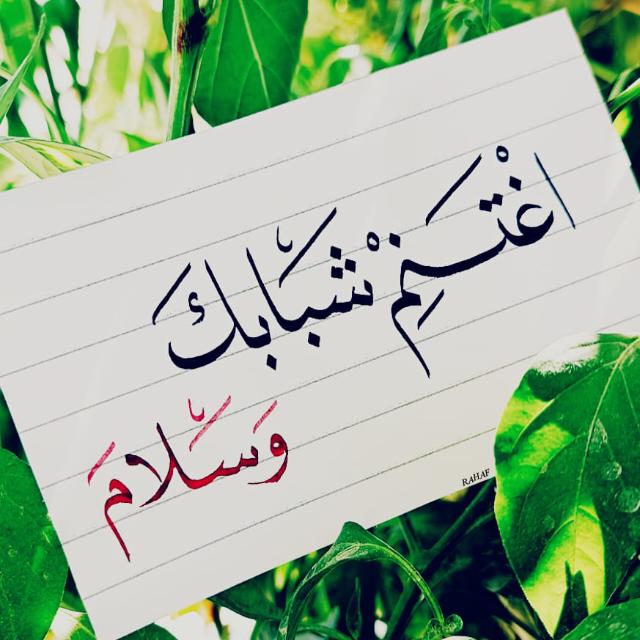 اغْتَنِمْ شَبَابَكَ
وَسَلَامَ
RAHAF